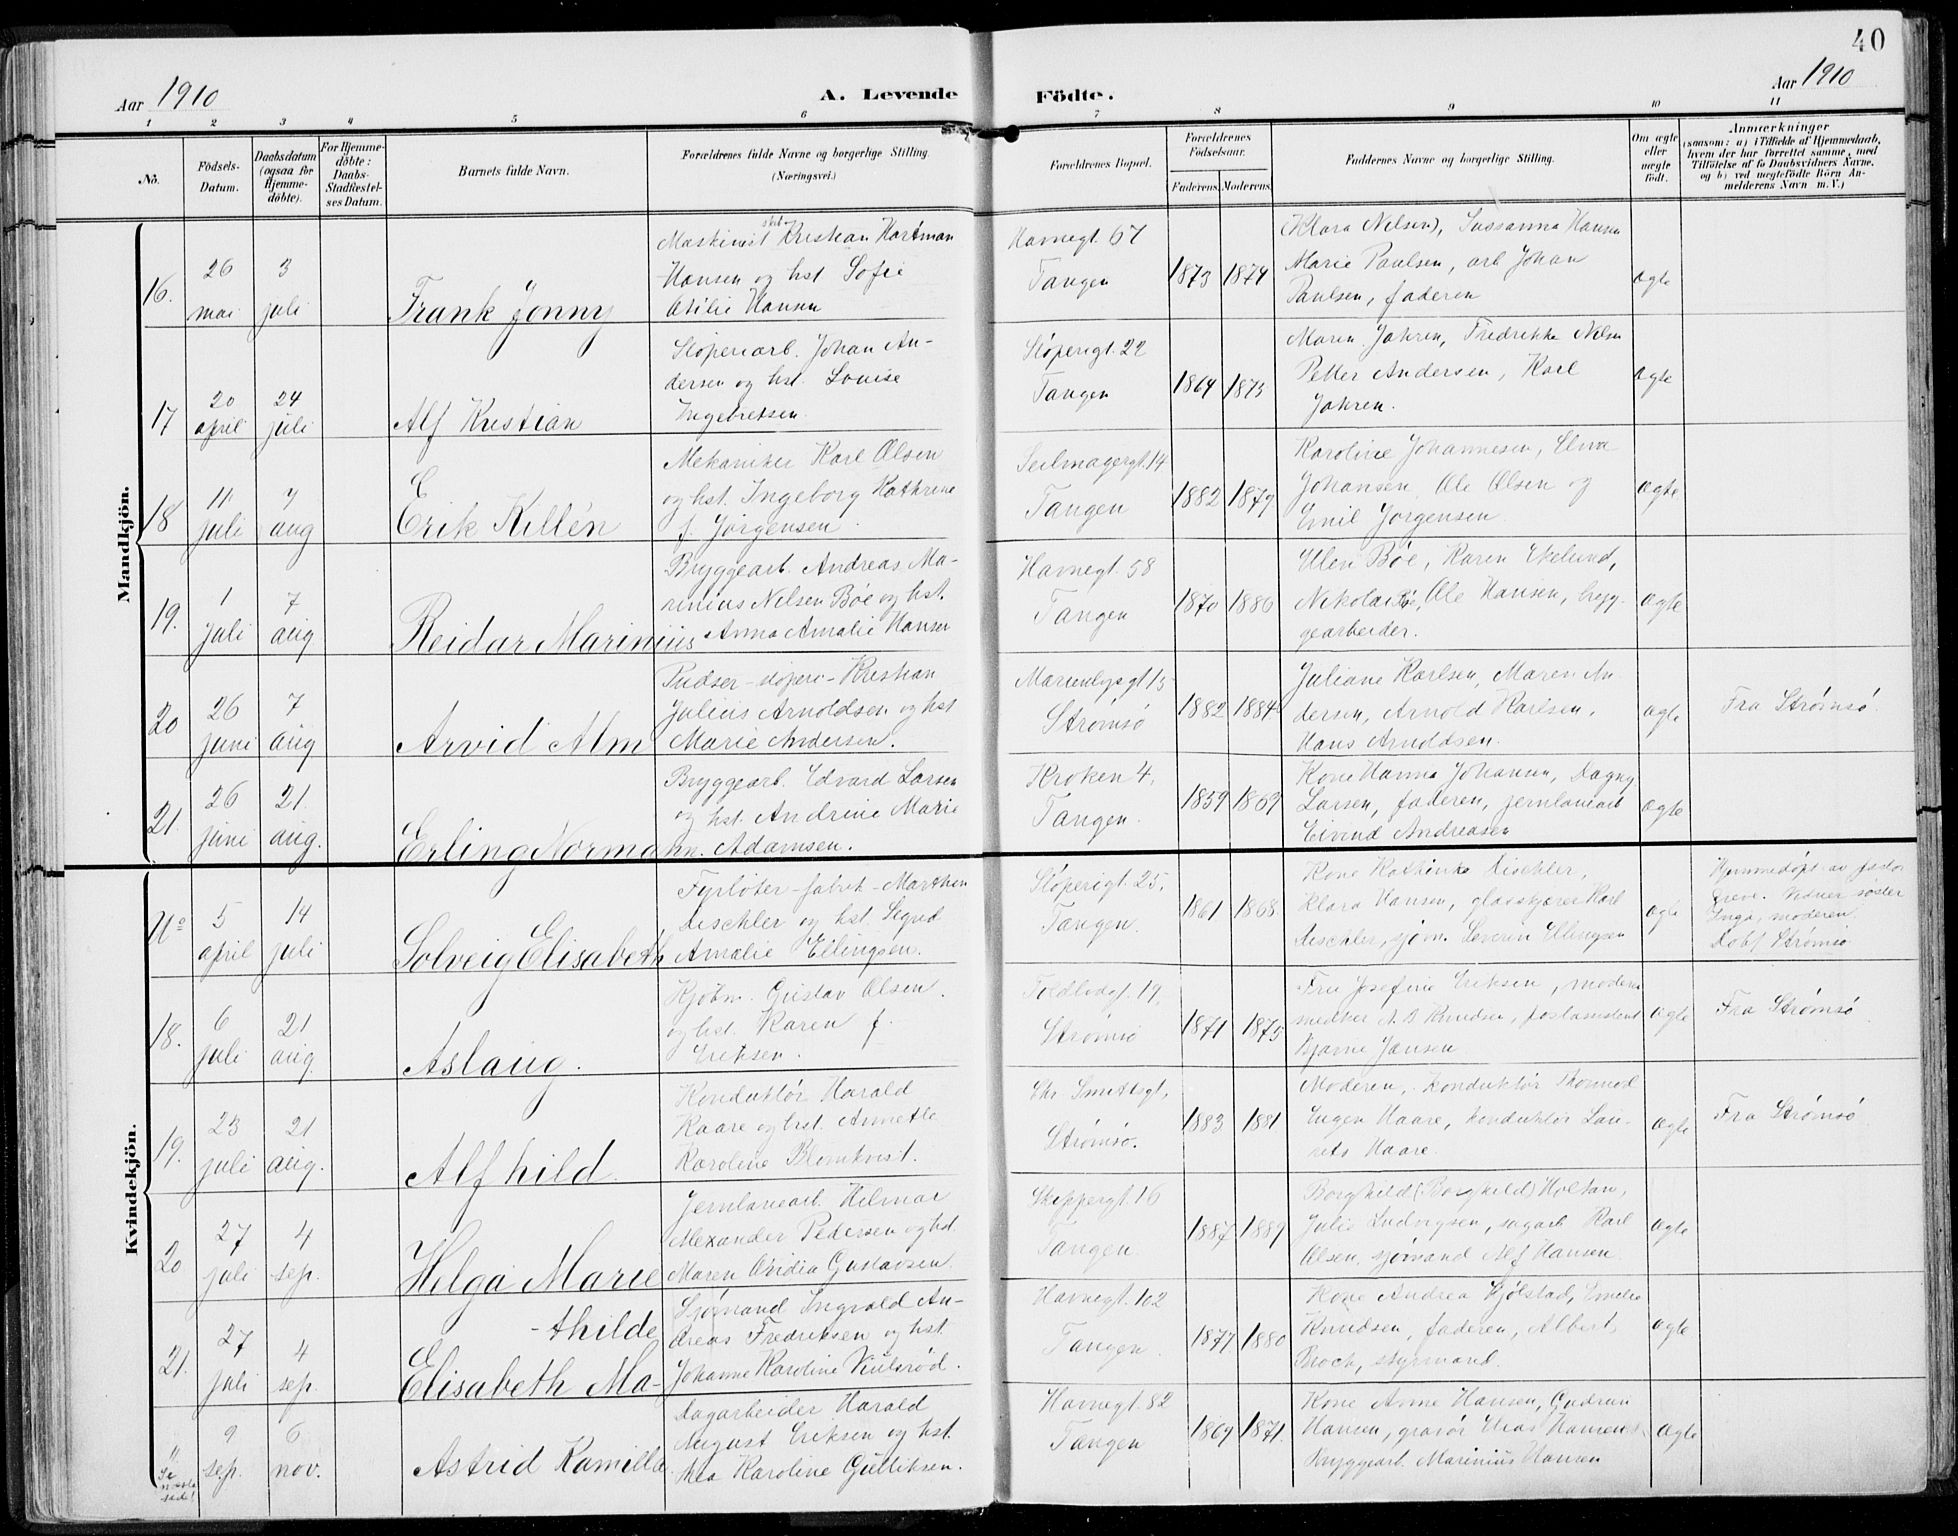 40
Aar 1910
A. Levende Födte.
Aar 1910
1 2 3 4 5 6 7 8 9 10 11
No.
Födsels-Datum.
Daabsdatum (ogsaa for Hjemmedöbte).
For Hjemmedöbte: Daabs-Stadfæstelses Datum.
Barnets fulde Navn.
Forældrenes fulde Navne og borgerlige Stilling.
(Næringsvei.)
Forældrenes Bopæl.
Forældrenes Födselsaar.
Faderens. Moderens.
Faddernes Navne og borgerlige Stilling.
Om ægte eller uægte födt.
Anmærkninger
(saasom: a) i Tilfælde af Hjemmedaab, hvem der har forrettet samme, med Tilföielse af to Daabsvidners Navne, og b) ved uægtefödte Börn Anmelderens Navn m. V.)
Mandkjön.
16. 26 mai 3 juli
Frank Jonny
Maskinist Kristian Hartman
Hansen og hst Sofie
Otilie Hansen
Havnegt. 67
Tangen
1873 1874
(Klara Nelsen), Sussanna Hansen
Marie Paulsen, arb Johan
Paulsen, faderen
ægte
17 20 april 24 juli
Alf Kristian
Sloperiarb. Johan An-
dersen og hst. Louise
Ingebretsen.
Sloperigt. 22
Tangen
1864 1873
Maren Jahren, Fredrikke Nelsen
Petter Andersen, Karl
Jahren.
ægte
18 11 juli 7 aug
Erik Killén
Mekaniker Karl Olsen
og hst. Ingeborg Kathrine
f. Jørgensen
Seilmagergt. 14
Tangen
1882 1879
Karoline Johannesen, Elna
Johansen, Ole Olsen og
Emil Jørgensen
ægte
19. 1 juli 7 aug.
Reidar Marinius
Bryggearb. Andreas Ma-
rinius Nelsen Bøe og hst.
Anna Amalie Hansen
Havnegt. 58
Tangen
1870 1886
Bøe, Karen Ekelund,
Nikolai Bøe, Ole Hansen, brygg-
gearbeider.
ægte
20 26 juni 7 aug
Arvid Alm
Pudser - sloperi - Kristian
Julius Arnoldsen og hst
Marie Andersen.
Marienlysgt 15
Strømsø
1882 1884
Juliane Karlsen, Maren An
dersen, Arnold Karlsen,
Hans Arnoldsen.
ægte
Fra Strømsø.
21. 26 juni 21. aug.
Erling Norman.
Bryggearb. Edvard Larsen
og hst. Andrine Marie
Adamsen.
Kroken 4,
Tangen.
1859 1869
Kone Hanna Johansen, Dagny
Larsen, faderen, jernlanearb
Eivind Andreasen
ægte
Kvindekjön.
No 5 april 14 juli
Solveig Elisabeth
Fyrbøter - fabrik - Marthin
Dischler og hst. Sigrid
Amalie Ellingsen.
Sloperigt. 25,
Tangen.
1861 1868
Kone Kathinka Dischler,
Klara Hansen, glasskjærer Karl
Dischler, sjøm. Severin Ellingsen
ægte
Hjemmedøpt av pastor
Greve. Vidner søster
Inga, moderen.
Døbt Strømsø
18. 6 juli 21 aug
Aslaug.
Kjøbm. Gustav Olsen.
og hst. Karen f.
Eriksen.
Toldbodgt. 19,
Strømsø
1871 1875
Fru Josefine Eriksen, moderen
A. B Knudsen, postassistent
Bjarne Jansen
ægte
Fra Strømsø
19. 23 juli 21 aug.
Alfhild.
Konduktør Harald
Kaare og hst. Annette
Karoline Blomkvist.
Chr. Smithsgt,
Strømsø.
1883 1881
Moderen, konduktør Thormod
Eugen Haare, konduktør Lau-
rits Haare.
ægte
Fra Strømsø
20 27 juli 4 sep.
Helga Marie
Jernlanearb. Hilmar
Alexander Pedersen og hst.
Maren Ovidia Gustavsen.
Skippergt. 16
Tangen.
1887 1889
Borghild (Borghild) Holtan,
Julie Ludvigsen, sagarb Karl
Olsen, sjømand Alf Hansen.
ægte
21. 27 juli 4 sep.
Elisabeth Ma-
-thilde
Sjømand Ingvald An-
dreas Fredriksen og hst.
Johanne Karoline
Havnegt. 102
Tangen.
1877 1880
Kone Andrea Kjølstad, Emelie
Knudsen, faderen, Albert
Broch, styrmand.
ægte
" 9 sep. 6 nov.
Se næste side!
Astrid Kamilla
Dagarbeider Harald
August Eriksen og hst.
Mea Karoline Gulliksen.
Havnegt. 82
Tangen
1869 1871.
Kone Anne Hansen, Gudrun
Hansen, gravør Elias Hansen
Bryggearb. Marinius Hansen
ægte